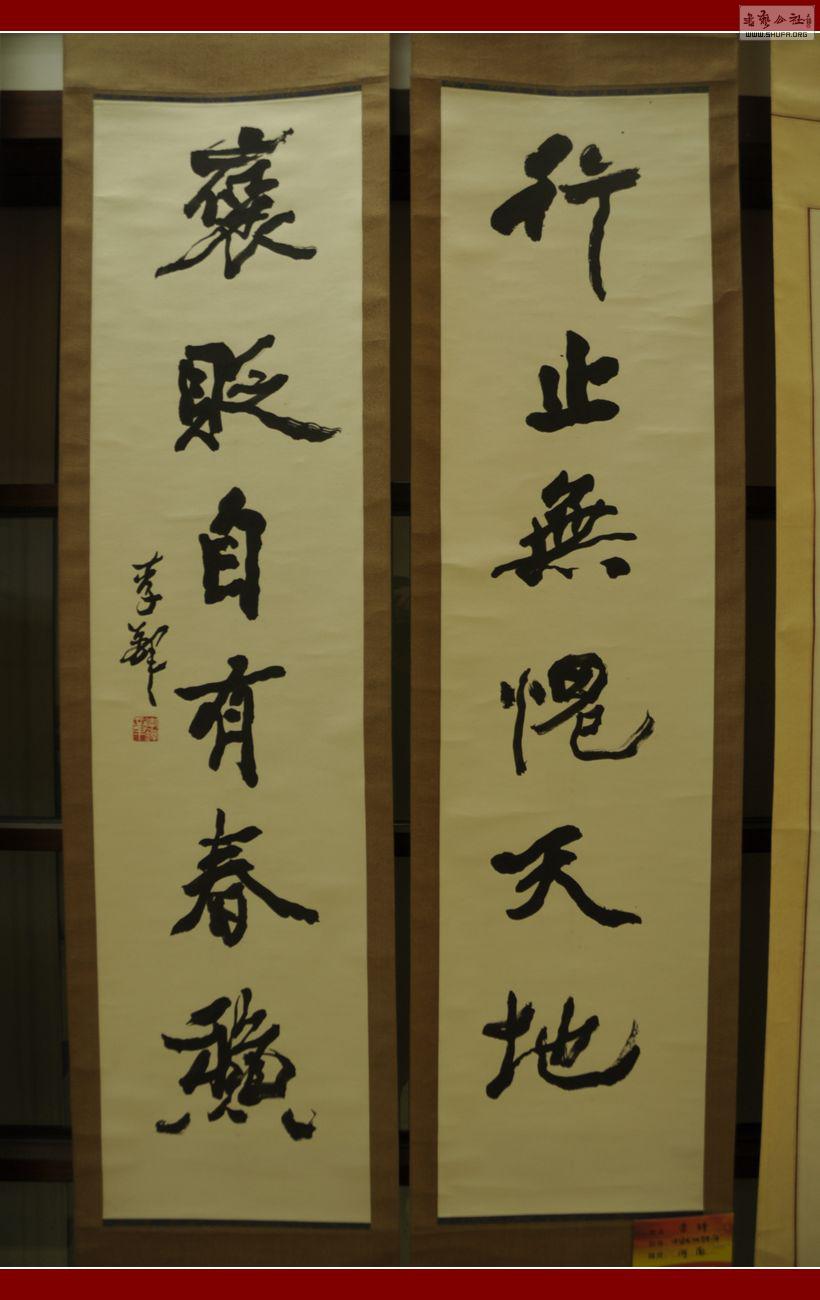 行止無愧天地
褒貶自有春秋
李鐸
書藝公社
WWW.SHUFA.ORG